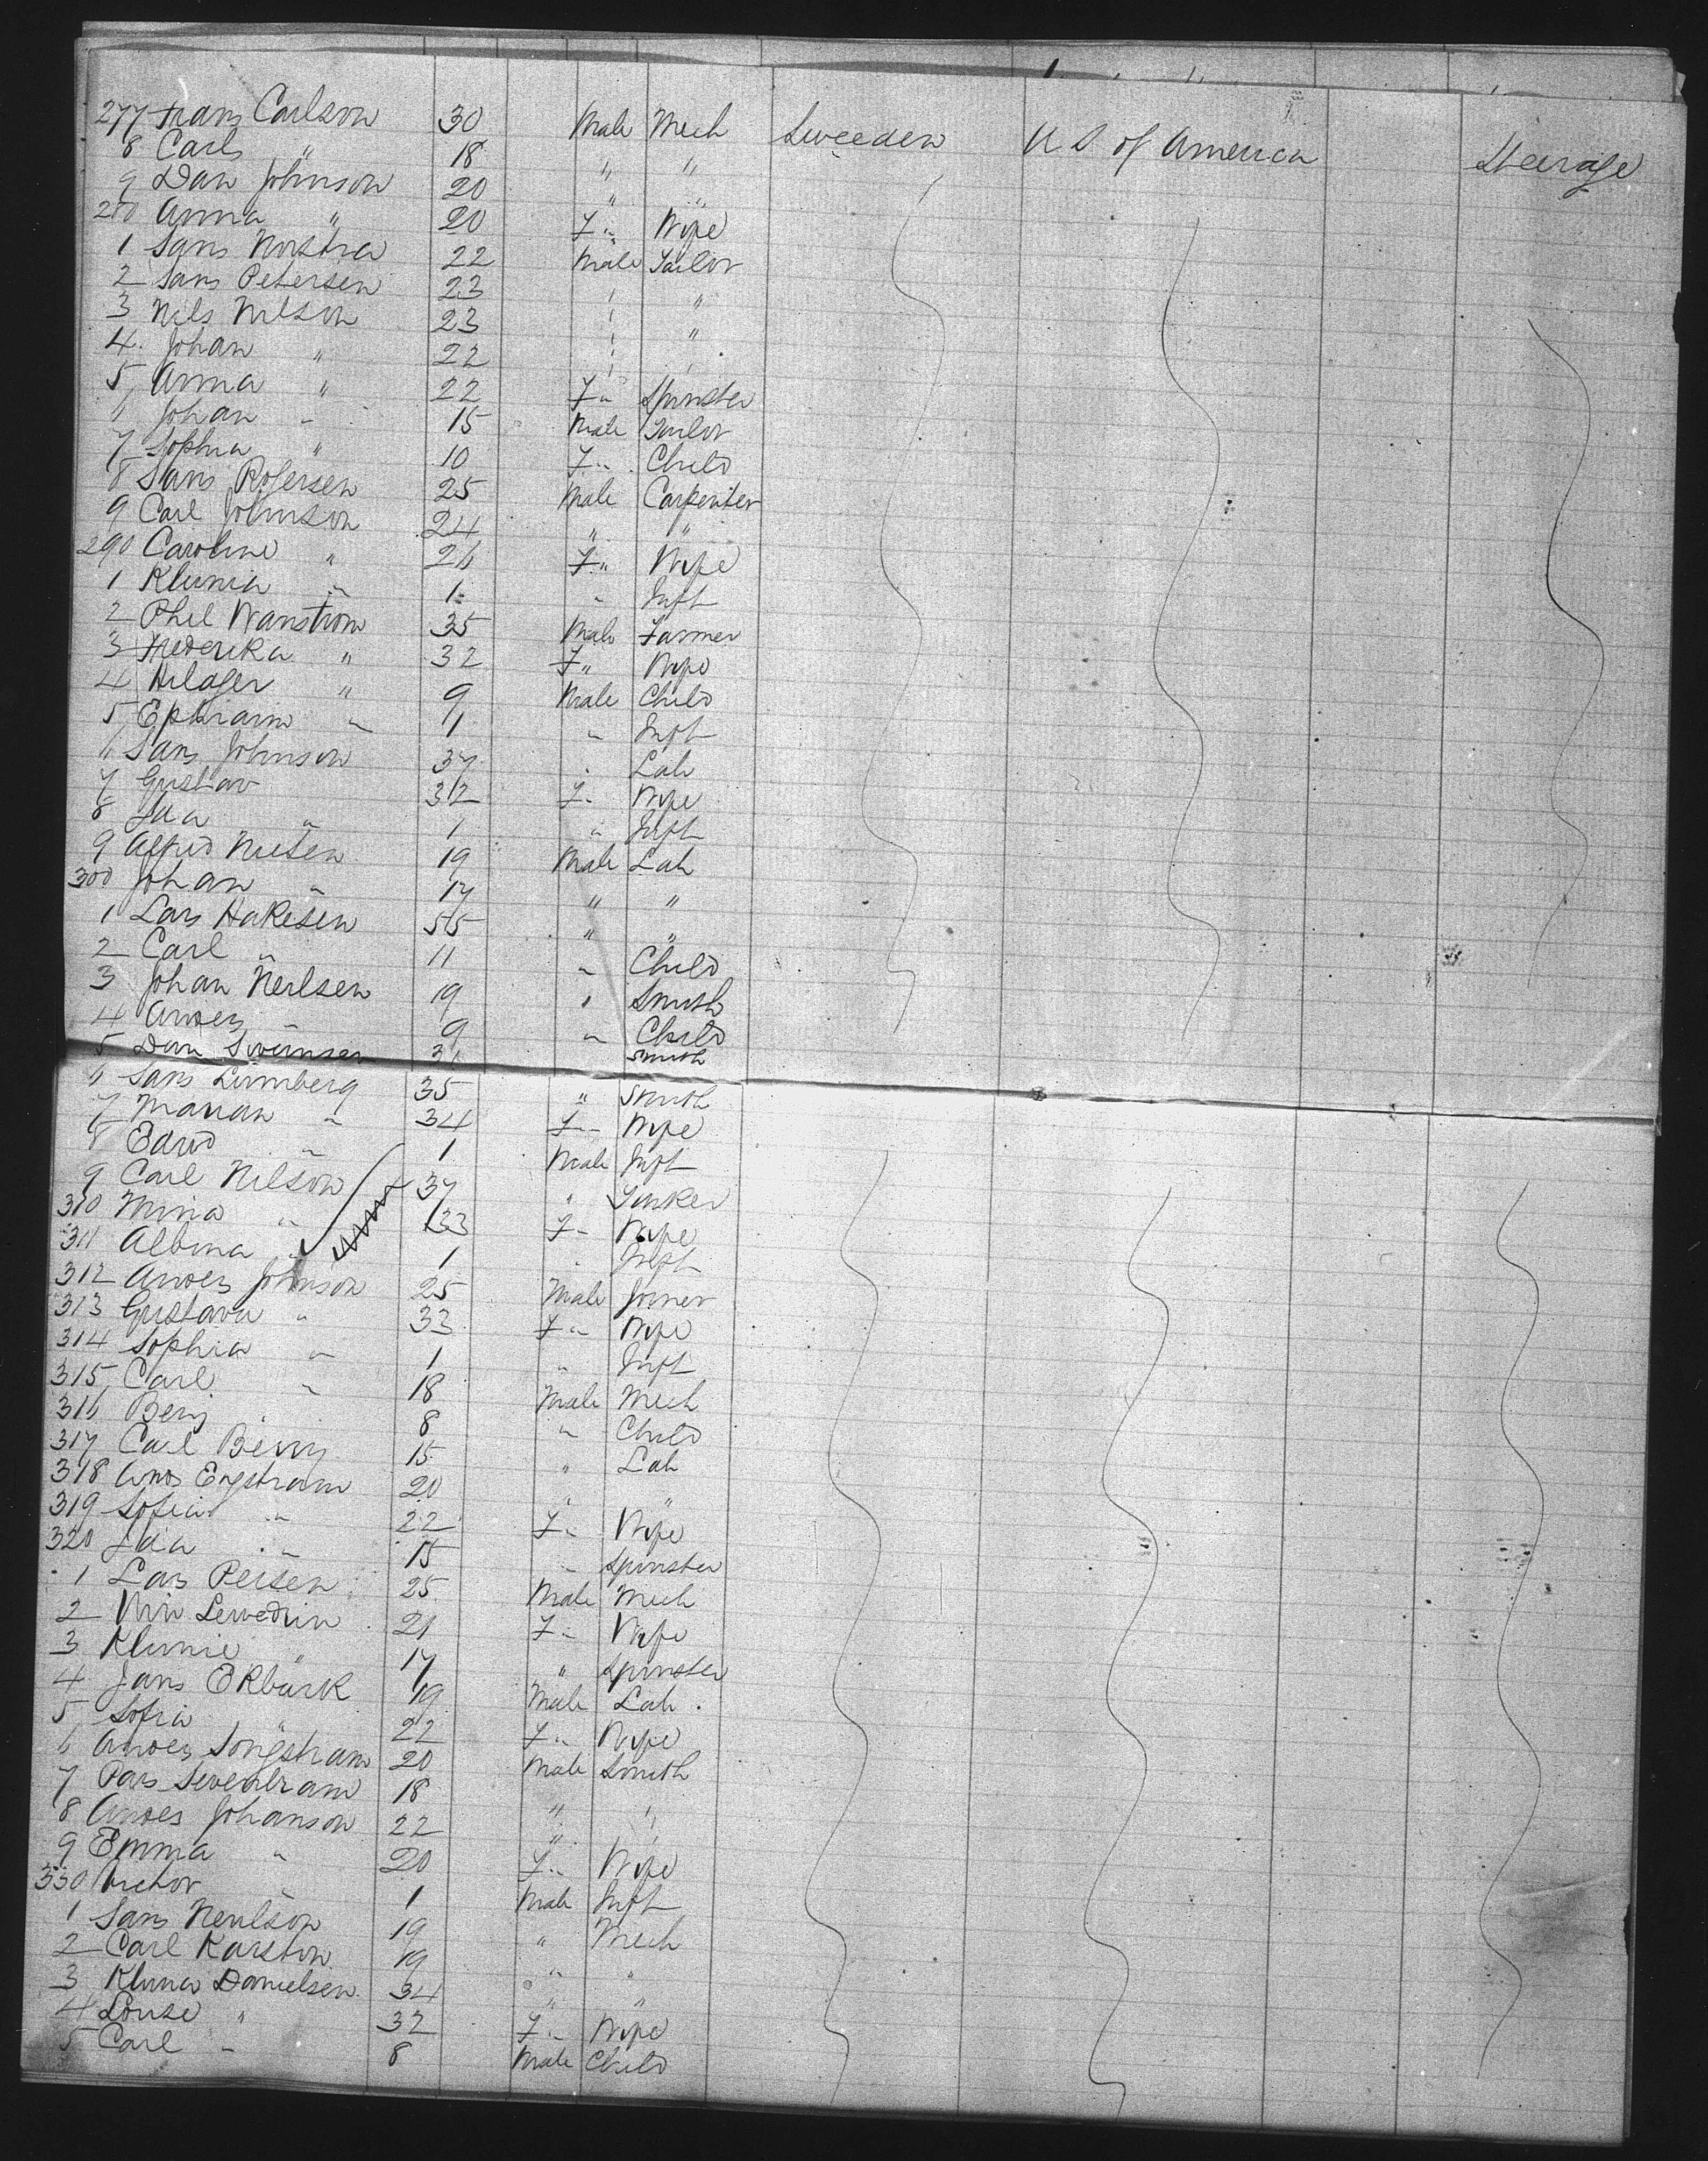 277 Frans Carlson 30 Male Mech Sweeden U S of America Steerage
8 Carls " 18 " "
9 Dan Johnson 20 " "
280 Anna " 20 F " Wife
1 Hans Norstra 22 Male Tailor
2 Hans Petersen 23 " "
3 Nils Nilson 23 " "
4 Johan " 22 "
5 Anna " 22 F " Spinster
6 Johan " 15 Male Tailor
7 Sophia " 10 F " Child
8 Hans Rogersen 25 Male Carpenter
9 Carl Johnson 24 " "
290 Caroline " 26 F " Wife
1 Klunia " 1 " Inft
2 Phil Wanstrom 35 Male Farmer
3 Frederika " 32 F " Wife
4 Hilager " 9 Male Child
5 Ephraim " 1 " Inft
6 Hans Johnson 37 " Lab
7 Gustav 32 F " Wife
8 Ida " 1 " Inft
9 Alfrid Nilsen 19 Male Lab
300 Johan " 17 " "
1 Lars Hakesen 55 " "
2 Carl " 11 " Child
3 Johan Neilsen 19 " Smith
4 Andes " 9 " Child
5 Dan Swensen Smith
6 Hans Lumberg 35 " Smith
7 Marian " 34 F " Wife
8 Edwd " 1 Male Inft
9 Carl Nilson 37 " Tinker
310 Mina " 33 F " Wife
311 Albina " 1 " Inft
312 Andes Johnson 25 Male Joiner
313 Gustava " 33 F " Wife
314 Sophia " 1 " Inft
315 Carl " 18 Male Mech
316 Benj " 8 " Child
317 Carl Berry 15 " Lab
318 Ands Engstram 20 " "
319 Sofia " 22 F " Wife
320 Ida " 15 " Spinster
1 Lars Peisen 25 Male Mech
2 21 F " Wife
3 Klunie " 17 " Spinster
4 Jans Ekbark 19 Male Lab
5 Sofia " 22 F " Wife
6 Andes Songstram 20 Male Smith
7 Pars 18 " "
8 Andes Johanson 22 " "
9 Emma " 20 F " Wife
330 Victor " 1 Male Inft
1 Hans Neulson 19 " Mech
2 Carl Karston 19 " "
3 Kluna Danielsen 34 " "
4 Louise " 32 F " Wife
5 Carl " 8 Male Child